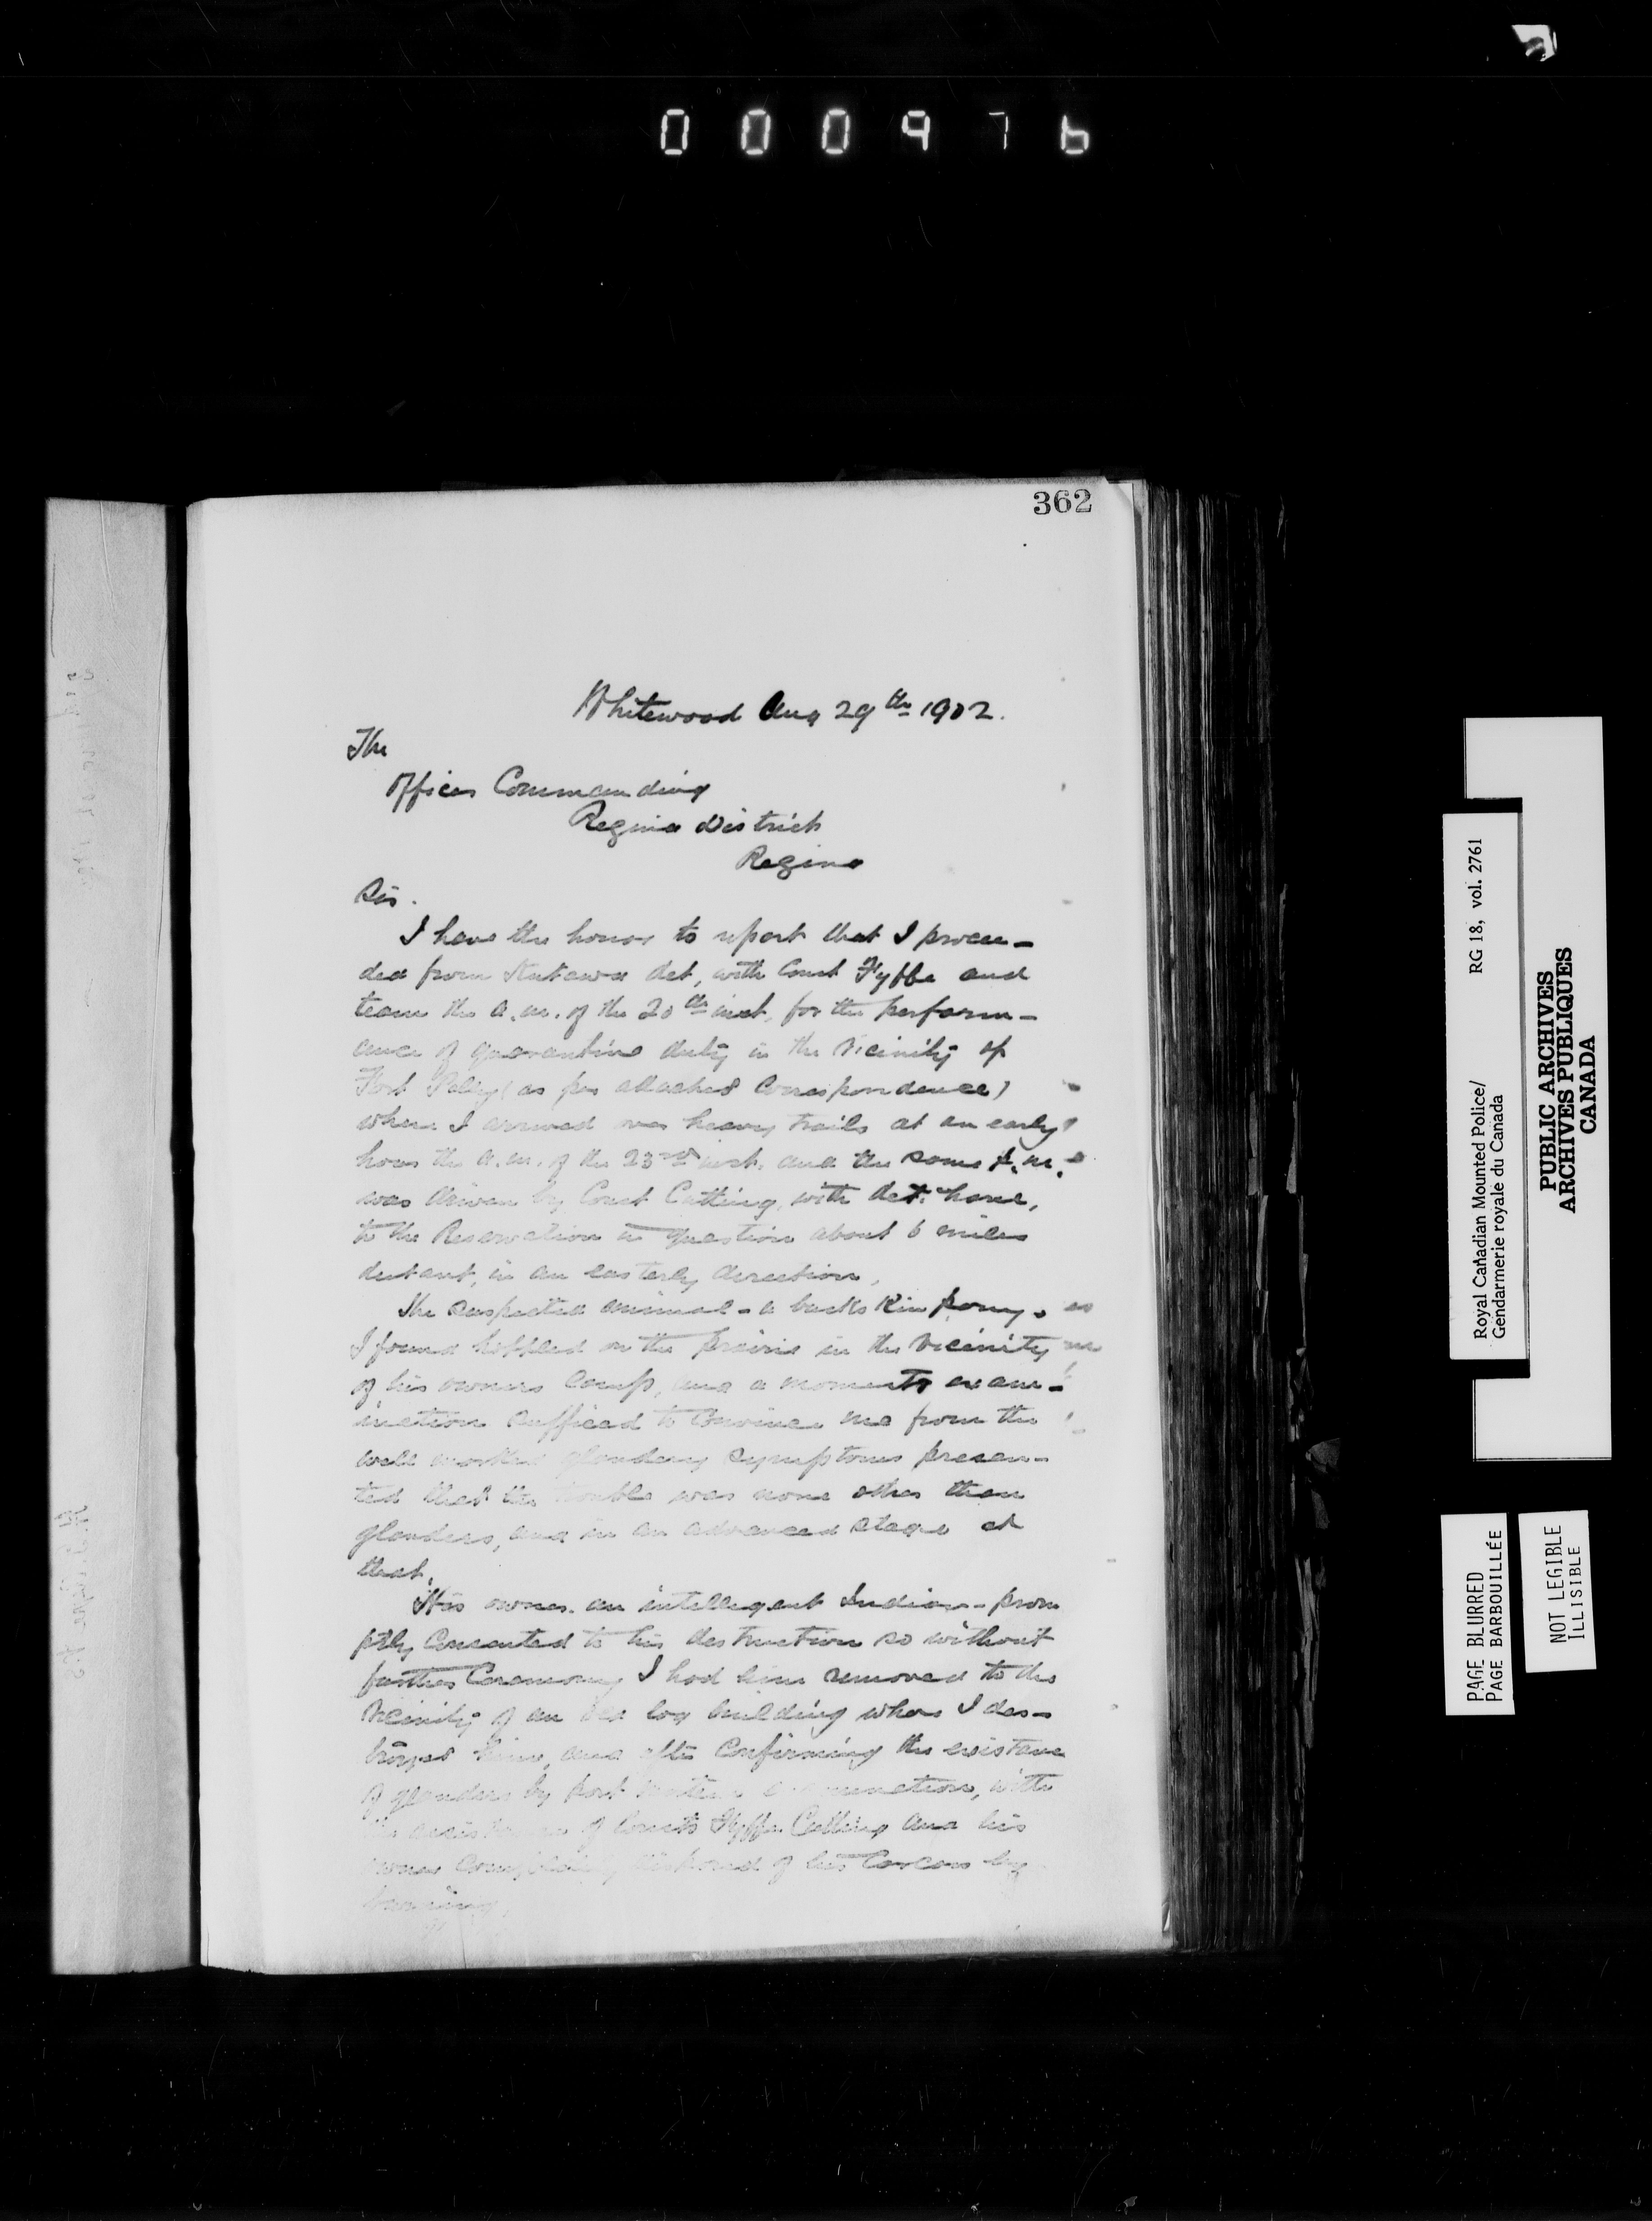 000976
362
Whitewood Aug 29th 1902.
The
Officer Commanding
Regina District
Regina
Sir.
I have the honor to report that I procee-
ded from det, with Const Fyffe and
team the a.m. of the 20th inst, for the perform-
ance of quarantine duty in the vicinity of
Fort Pelly (as per attached Correspondence)
where I arrived over heavy trails at an early
hour the a.m. of the 23rd inst. and the same
was driven by Const Cutting, with det. horse,
to the Reservation in question about 6 miles
distant, in an easterly direction.
The suspected animal - a buckskin pony.
I found hobbled on the prairie in the vicinity
of his owners Camp, and a moments exam-
ination sufficed to Convince me from the
well marked glanders symptoms presen-
ted that the trouble was none other than
glanders, and in an advanced stage at
that.
His owner - an intelligent Indian - prom
ptly Consented to his destruction so without
further Ceremony I had him removed to the
vicinity of an old log building where I des-
troyed him, and after Confirming the existance
of glanders by post mortem examination, with
the assistance of Consts Fyffe Cutting and his
owner Completely disposed of his Carcass by
burning.
Royal Canadian Mounted Police/ RG 18, vol. 2761
Gendarmerie royale du Canada
PUBLIC ARCHIVES
ARCHIVES PUBLIQUES
CANADA
PAGE BLURRED
PAGE BARBOUILLÉE
NOT LEGIBLE
ILLISIBLE